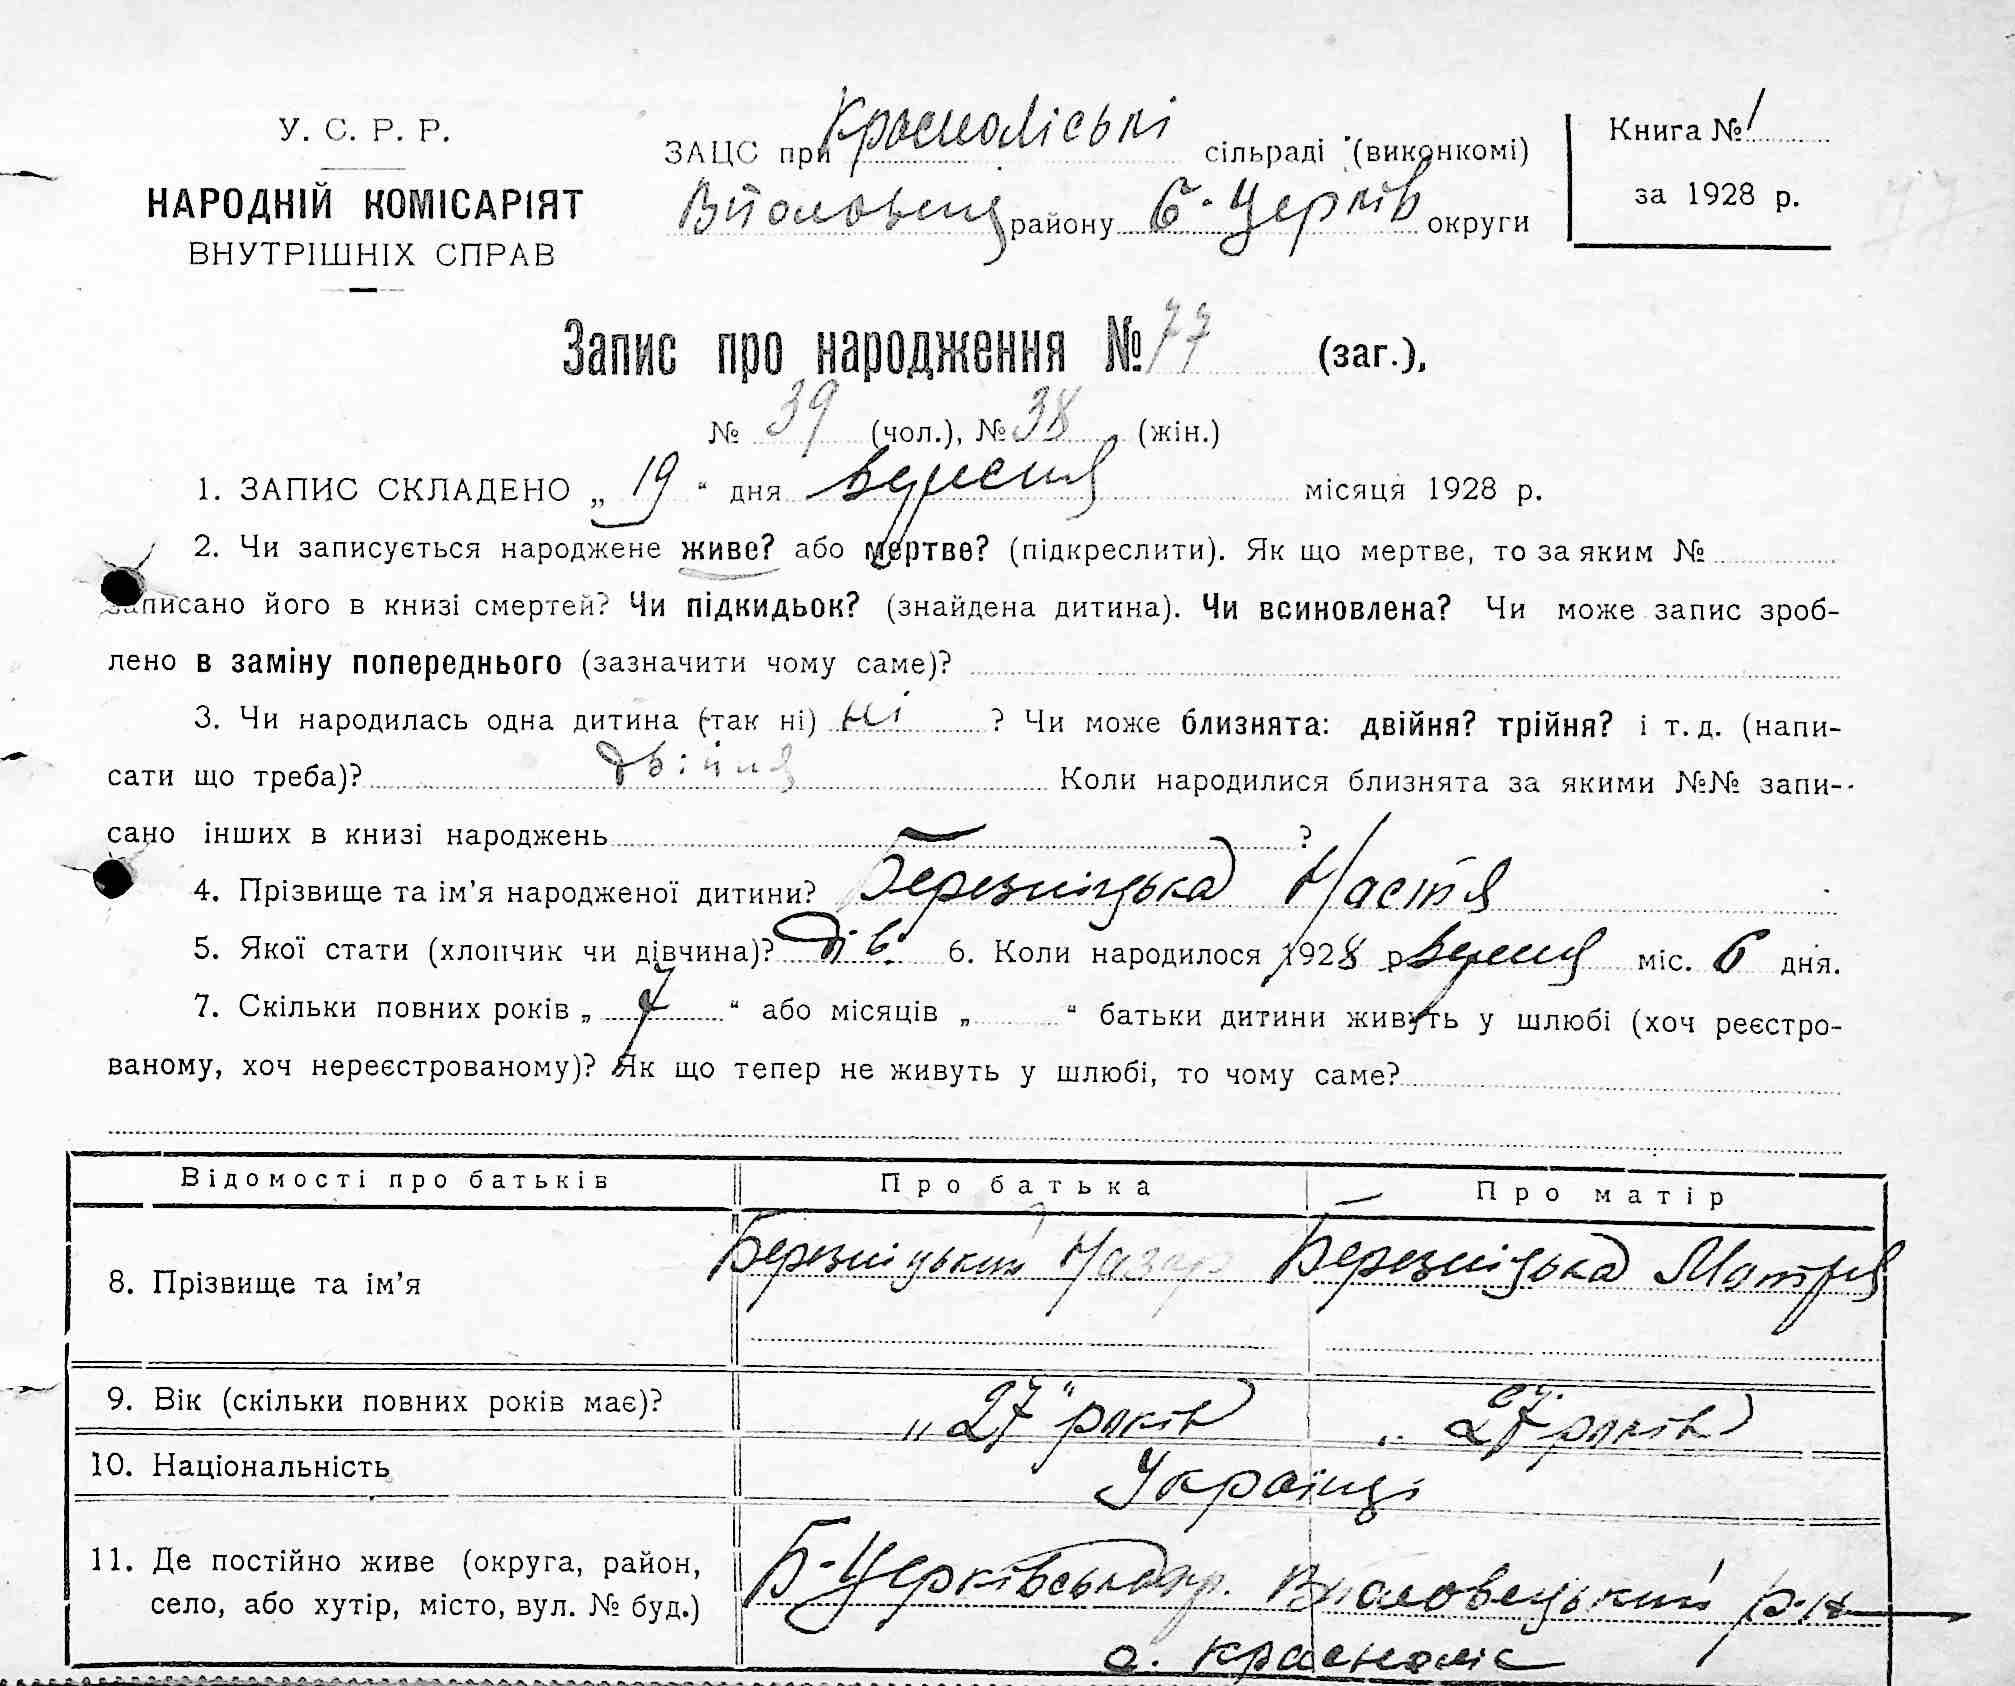 У. С. Р. Р.
НАРОДНІЙ КОМІСАРІЯТ
ВНУТРІШНІХ СПРАВ
ЗАЦС при Красноліські сільраді (виконкомі)
району Б-Церків округи
Книга № 1
за 1928 р.
77
Запис про народження № 77 (заг.),
№ 39 (чол.), № 38 (жін.)
1. ЗАПИС СКЛАДЕНО „ 19 “ дня вересня місяця 1928 р.
2. Чи записується народжене живе? або мертве? (підкреслити). Як що мертве, то за яким №
записано його в книзі смертей? Чи підкидьок? (знайдена дитина). Чи всиновлена? Чи може запис зроб-
лено в заміну попереднього (зазначити чому саме)?
3. Чи народилась одна дитина (так ні) ні ? Чи може близнята: двійня? трійня? і т. д. (напи-
сати що треба)? двійня Коли народилися близнята за якими №№ запи-
сано інших в книзі народжень ?
4. Прізвище та ім’я народженої дитини? Березніцька Настя
5. Якої стати (хлопчик чи дівчина)? дів. 6. Коли народилося 1928 р. вересня міс. 6 дня.
7. Скільки повних років „ 7 “ або місяців „ “ батьки дитини живуть у шлюбі (хоч реєстро-
ваному, хоч нереєстрованому)? Як що тепер не живуть у шлюбі, то чому саме?
Відомості про батьків Про батька Про матір
8. Прізвище та ім’я Березніцький Назар Березніцька Мотря
9. Вік (скільки повних років має)? „ 27 “ років „ 27 “ років
10. Національність Українці
11. Де постійно живе (округа, район, Б-Церківська окр. р-н
село, або хутір, місто, вул. № буд.) с. Красноліс